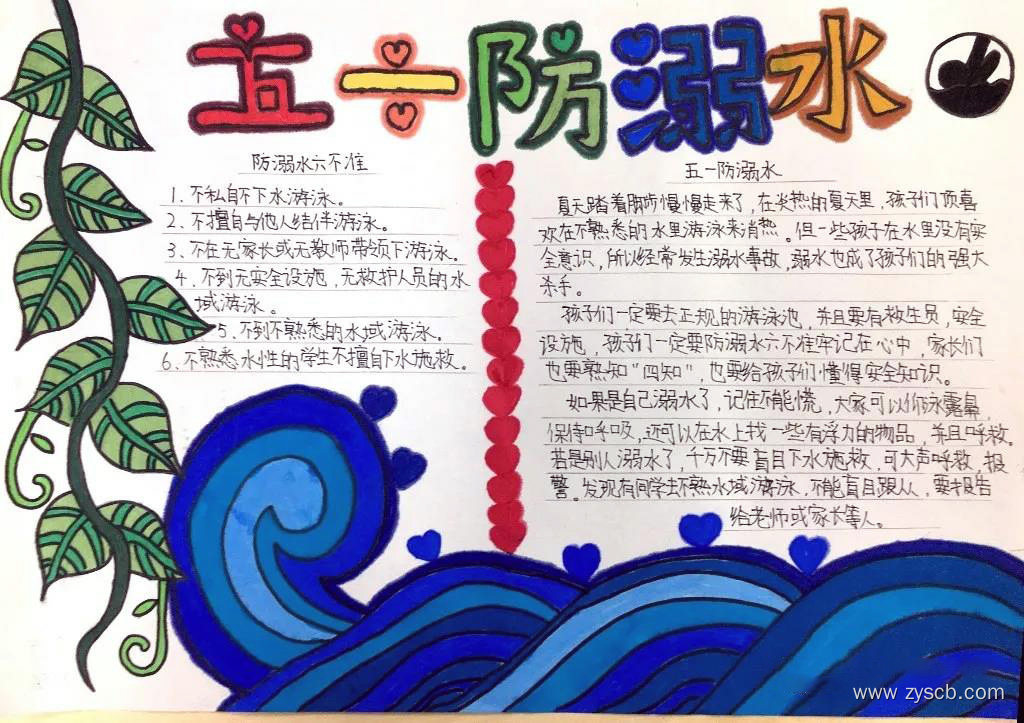 五一防溺水
防溺水六不准
1、不私自下水游泳。
2、不擅自与他人结伴游泳。
3、不在无家长或无教师带领下游泳。
4、不到无安全设施，无救护人员的水
域游泳。
5、不到不熟悉的水域游泳。
6、不熟悉水性的学生不擅自下水施救。
五一防溺水
夏天踏着脚步慢慢走来了，在炎热的夏天里，孩子们顶喜
欢在不熟悉的水里游泳来消热。但一些孩子在水里没有安
全意识，所以经常发生溺水事故，溺水也成了孩子们的强大
杀手。
孩子们一定要去正规的游泳池，并且要有救生员，安全
设施，孩子们一定要防溺水六不准牢记在心中，家长们
也要熟知“四知”，也要给孩子们懂得安全知识。
如果是自己溺水了，记住不能慌，大家可以仰泳露鼻，
保持呼吸，还可以在水上找一些有浮力的物品，并且呼救。
若是别人溺水了，千万不要盲目下水施救，可大声呼救，报
警。发现有同学去不熟水域游泳，不能盲目跟从，要报告
给老师或家长等人。
www.zyscb.com